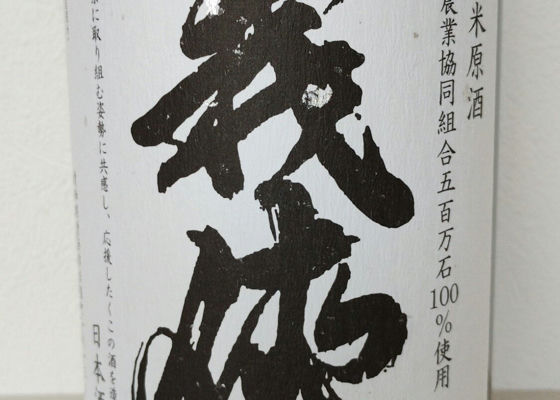 米原酒
農業協同組合五百万石100%使用
義侠
に取り組む姿勢に共感し、応援したくこの酒を
日本酒